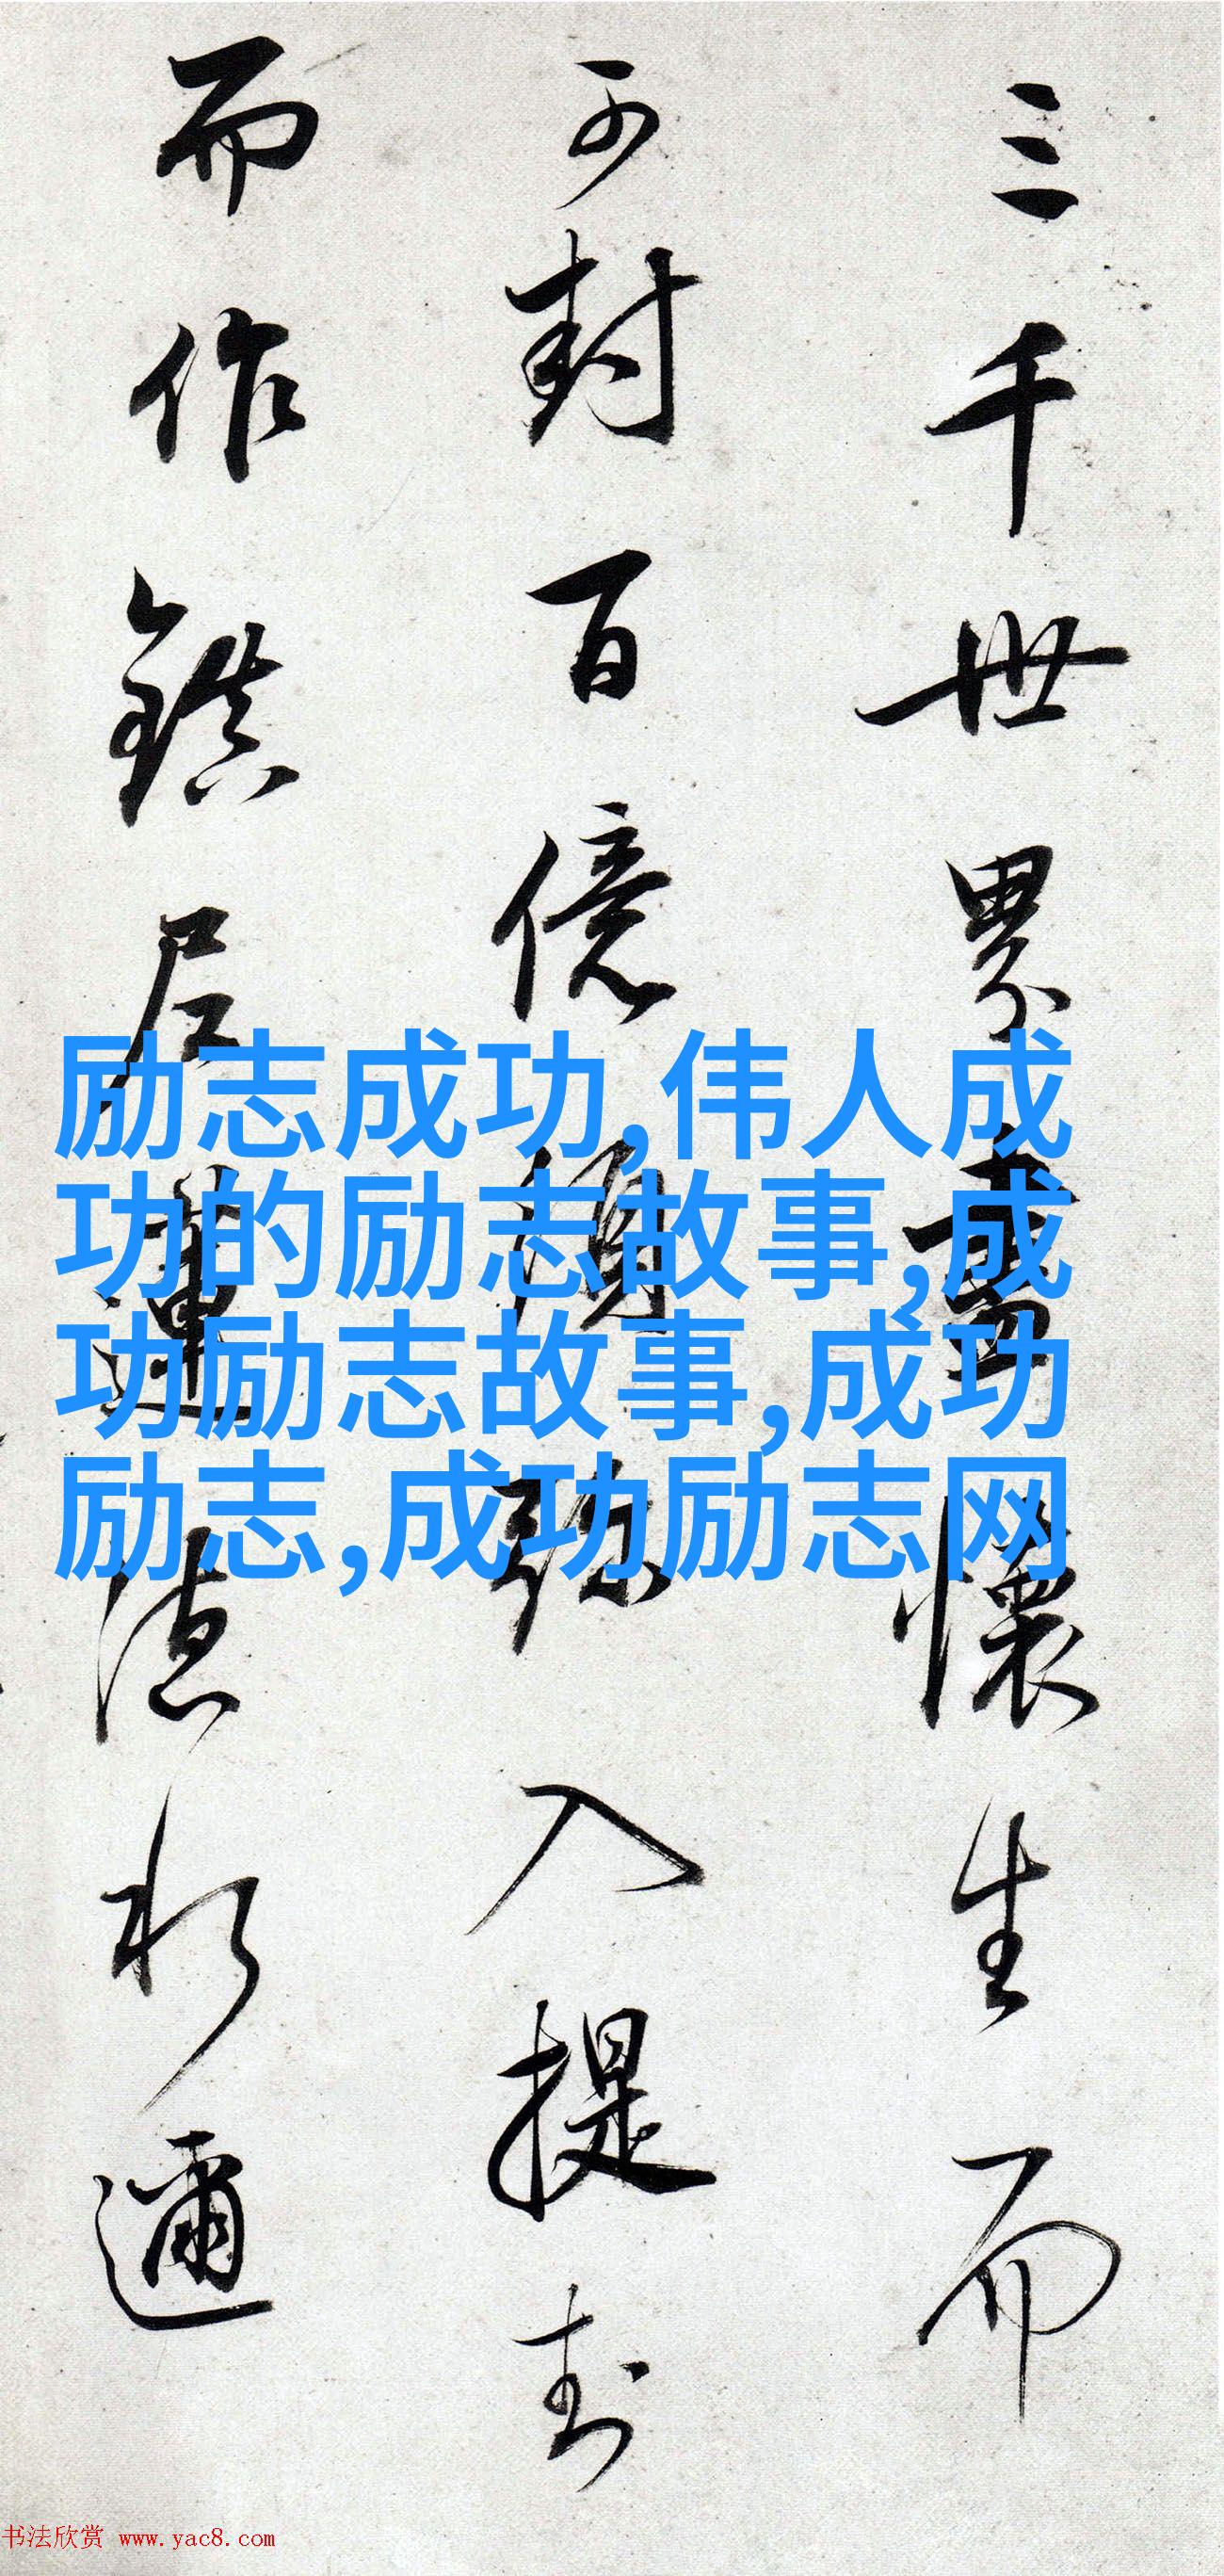 三千世界盡懷生而
可封百億須弥入提封
而作鎮蓮於邇
励志成功,伟人成
功的励志故事,成
功励志故事,成功
励志,成功励志网
书法欣赏 www.yac8.com